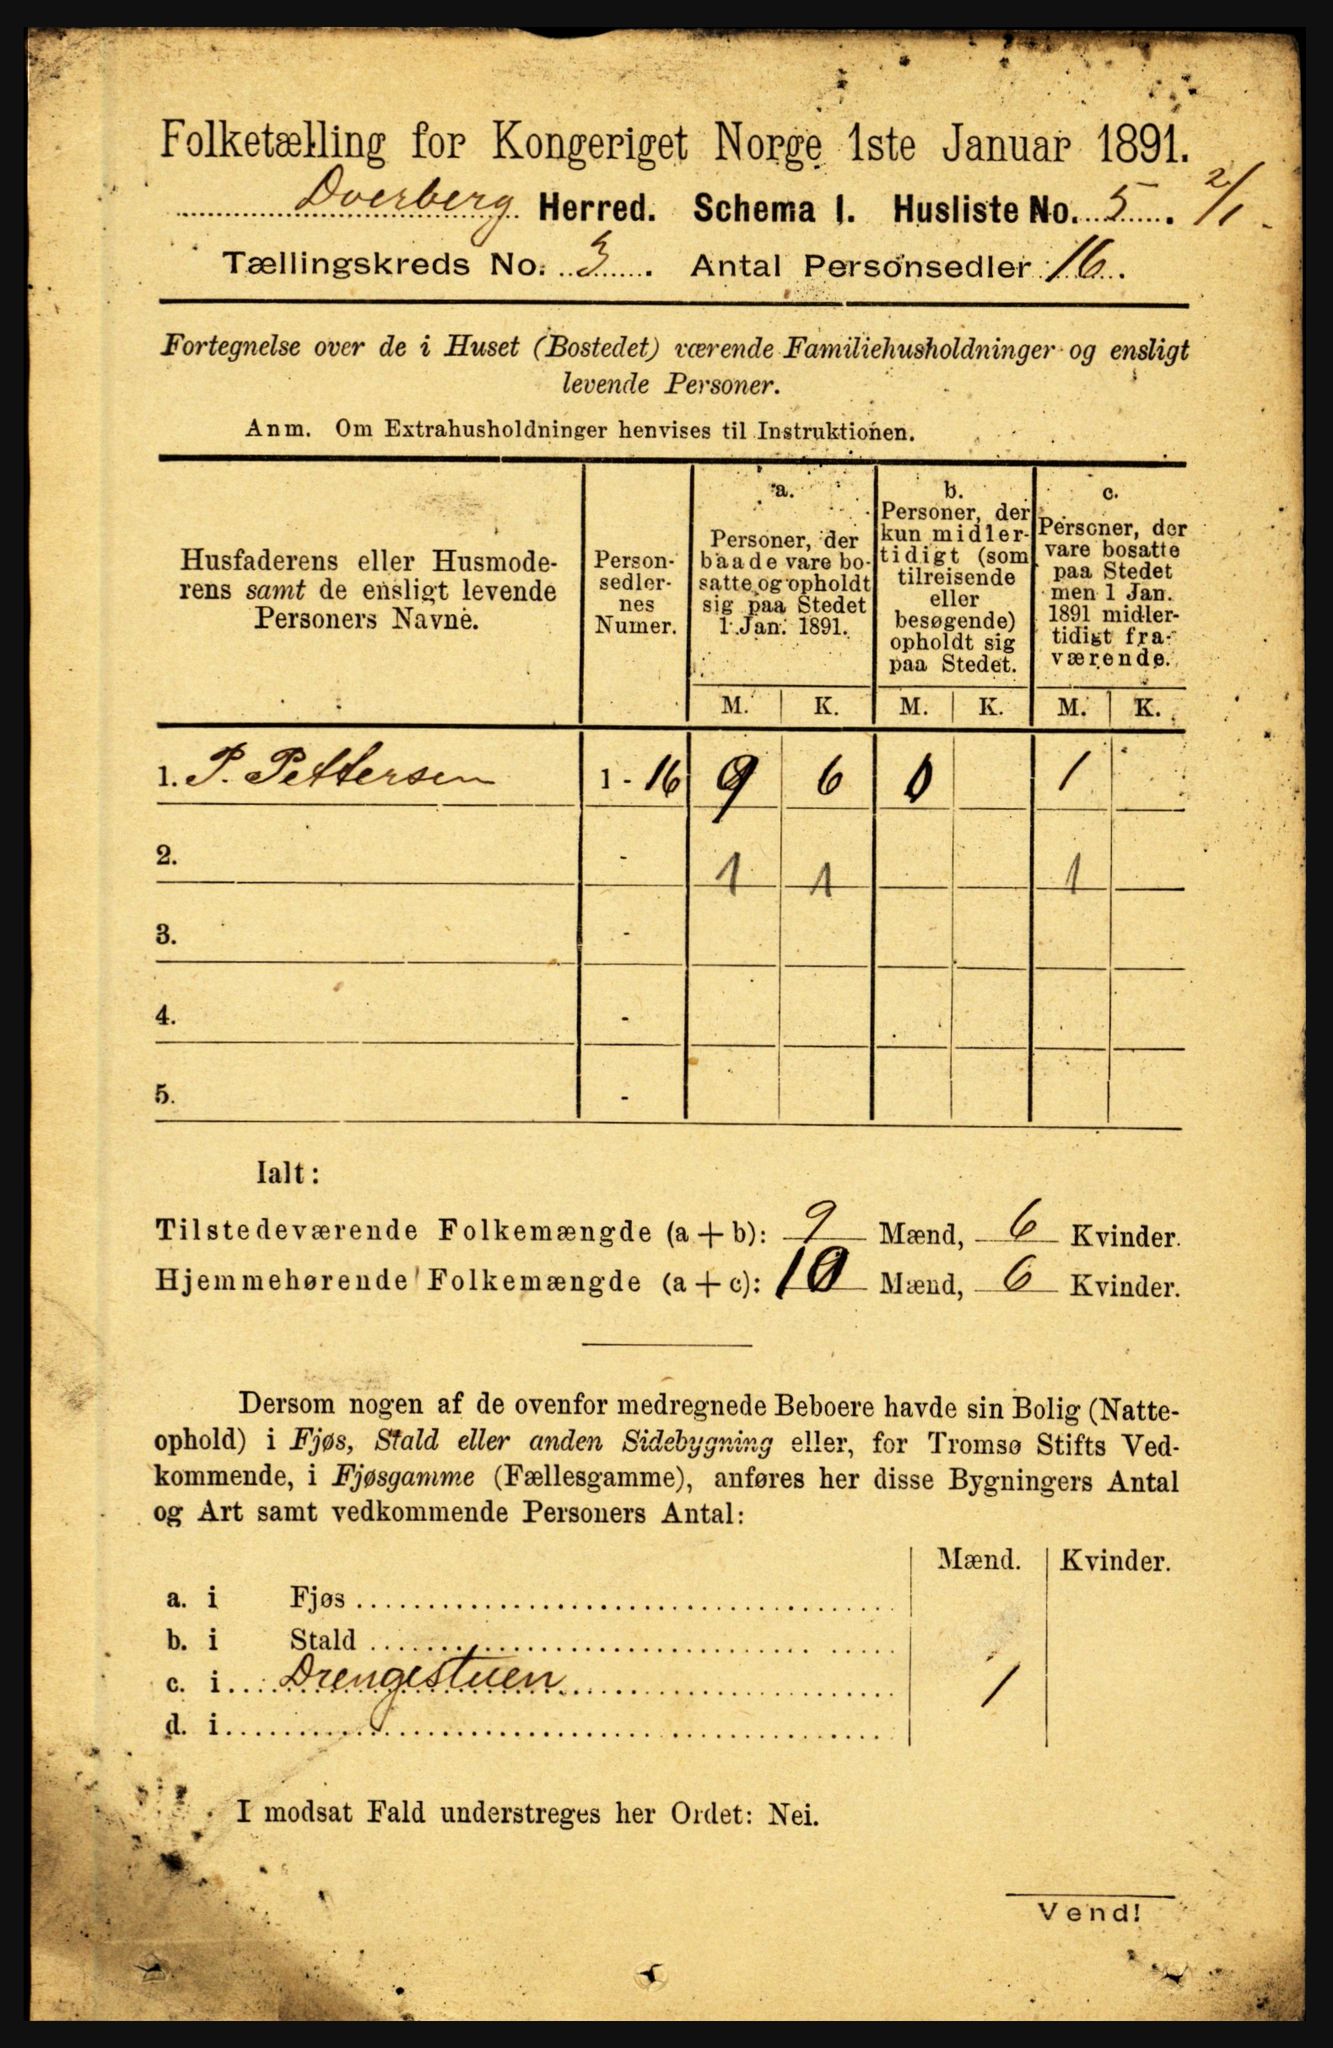 Folketælling for Kongeriget Norge 1ste Januar 1891.
Dverberg Herred. Schema I. Husliste No. 5. 2/1
Tællingskreds No. 3. Antal Personsedler 16.
Fortegnelse over de i Huset (Bostedet) værende Familiehusholdninger og ensligt
levende Personer.
Anm. Om Extrahusholdninger henvises til Instruktionen.
Husfaderens eller Husmode-
rens samt de ensligt levende
Personers Navne.
Person-
sedler-
nes
Numer.
a.
Personer, der
baade vare bo-
satte og opholdt
sig paa Stedet
1 Jan. 1891.
b.
Personer, der
kun midler-
tidigt (som
tilreisende
eller
besøgende)
opholdt sig
paa Stedet.
c.
Personer, der
vare bosatte
paa Stedet
men 1 Jan.
1891 midler-
tidigt fra-
værende.
M. K. M. K. M. K.
1. P. Pettersen 1 - 16 9 6 0 1
2. - 1 1 1
3. -
4. -
5. -
Ialt:
Tilstedeværende Folkemængde (a + b): 9 Mænd, 6 Kvinder.
Hjemmehørende Folkemængde (a + c): 10 Mænd, 6 Kvinder.
Dersom nogen af de ovenfor medregnede Beboere havde sin Bolig (Natte-
ophold) i Fjøs, Stald eller anden Sidebygning eller, for Tromsø Stifts Ved-
kommende, i Fjøsgamme (Fællesgamme), anføres her disse Bygningers Antal
og Art samt vedkommende Personers Antal:
Mænd. Kvinder.
a. i Fjøs
b. i Stald
c. i Drengestuen 1
d. i
I modsat Fald understreges her Ordet: Nei.
Vend!